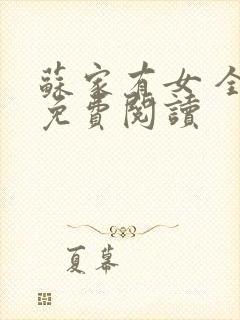 蘇家有女全
免費閱讀
夏幕